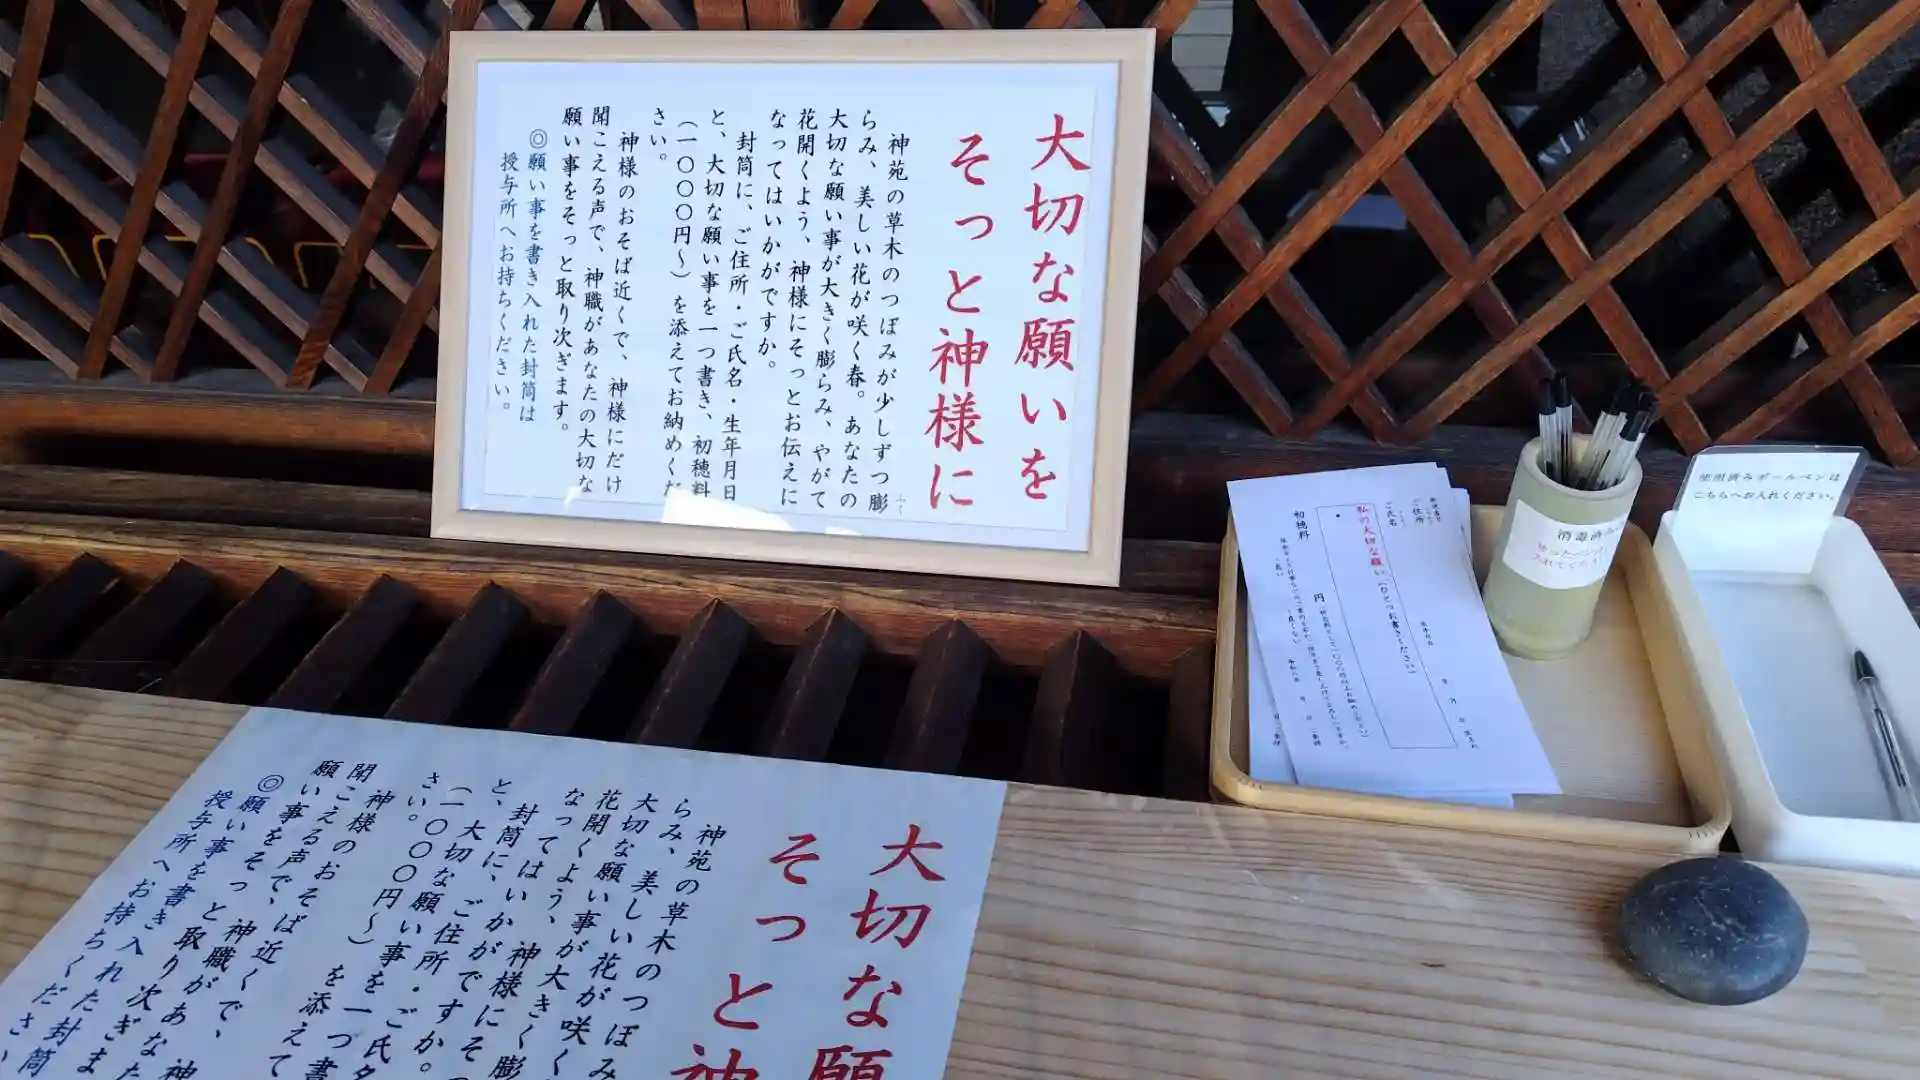 大切な願いを
そっと神様に
神苑の草木のつぼみが少しずつ膨
らみ、美しい花が咲く春。あなたの
大切な願い事が大きく膨らみ、やがて
花開くよう、神様にそっとお伝えに
なってはいかがですか。
封筒に、ご住所・ご氏名・生年月日
と、大切な願い事を一つ書き、初穂料
（一〇〇〇円～）を添えてお納めくだ
さい。
神様のおそば近くで、神様にだけ
聞こえる声で、神職があなたの大切な
願い事をそっと取り次ぎます。
◎願い事を書き入れた封筒は
授与所へお持ちください。
ご住所
ご氏名
私の大切な願い（ひとつお書きください）
初穂料
円
消毒済み
使用済みボールペンは
こちらへお入れください。
大切な願
そっと神
神苑の草木のつぼみ
らみ、美しい花が咲く
大切な願い事が大きく膨
花開くよう、神様にそっ
なってはいかがですか。
封筒に、ご住所・ご氏名
と、大切な願い事を一つ書
（一〇〇〇円～）を添えて
さい。
神様のおそば近くで、神
聞こえる声で、神職があなた
願い事をそっと取り次ぎま
◎願い事を書き入れた封筒
授与所へお持ちくださ